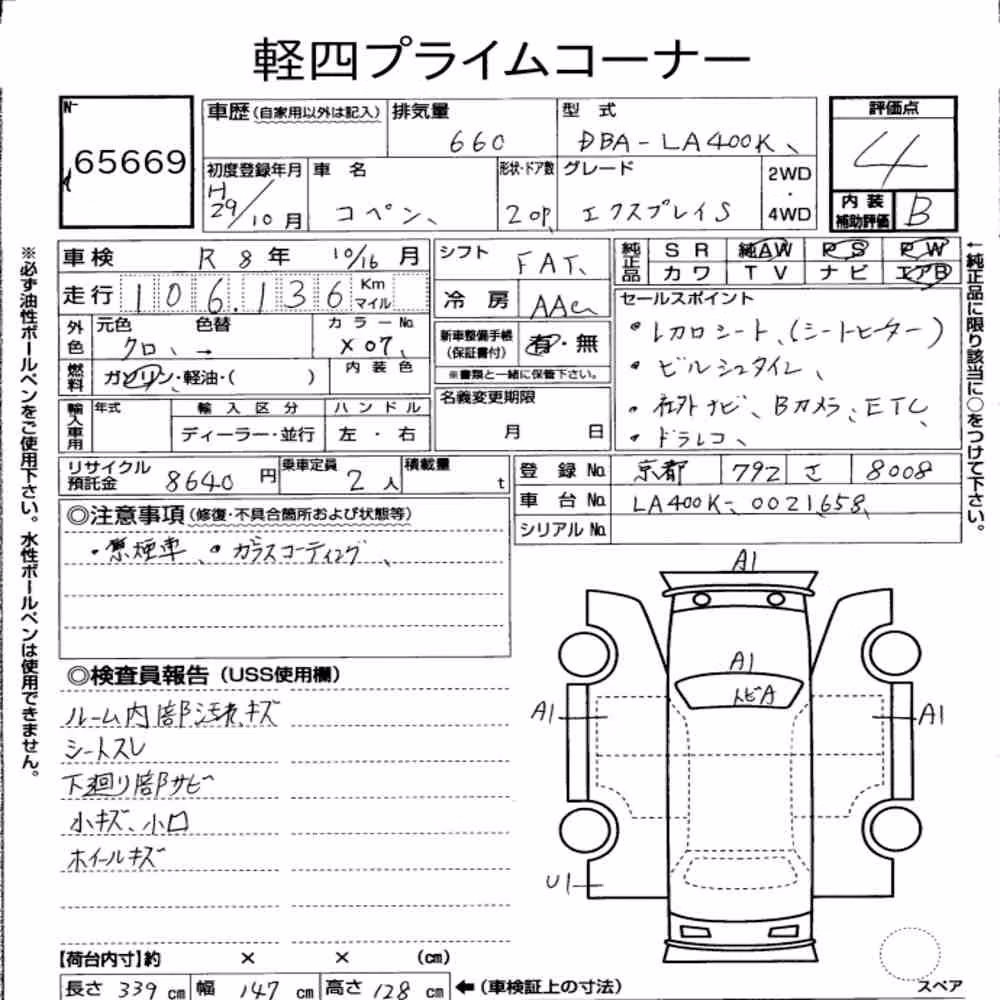 軽四プライムコーナー
No 65669
車歴(自家用以外は記入) 排気量 660 型式 DBA-LA400K、
評価点 4
初度登録年月 H29/10月 車名 コペン、 形状・ドア数 2 OP グレード エクスプレイS 2WD・4WD
内装補助評価 B
車検 R8年 10/16月 シフト FAT、
純正品 SR 純AW PS PW
カワ TV ナビ エアB
走行 106,136 Kmマイル 冷房 AAC
外色 元色 クロ、 色替 → カラーNo. X07、
新車整備手帳(保証書付) 有・無
※書類と一緒に保管下さい。
燃料 ガソリン・軽油・( ) 内装色
輸入車用 年式 輸入区分 ディーラー・並行 ハンドル 左・右
名義変更期限 月 日
セールスポイント
・レカロシート、(シートヒーター)
・ビルシュタイン、
・社外ナビ、Bカメラ、ETC
・ドラレコ、
リサイクル預託金 8640円 乗車定員 2人 積載量 t
登録No. 京都 792 さ 8008
車台No. LA400K-0021658、
シリアルNo.
◎注意事項(修復・不具合箇所および状態等)
・禁煙車、・ガラスコーティング、
◎検査員報告(USS使用欄)
ルーム内部汚れ、キズ
シートスレ
下廻り部サビ
小キズ、小凹
ホイールキズ
A1
A1
トビA
A1
A1
U1
スペア
【荷台内寸】約 × × (cm)
長さ 339 cm 幅 147 cm 高さ 128 cm ←(車検証上の寸法)
※必ず油性ボールペンをご使用下さい。水性ボールペンは使用できません。
←純正品に限り該当に○をつけて下さい。